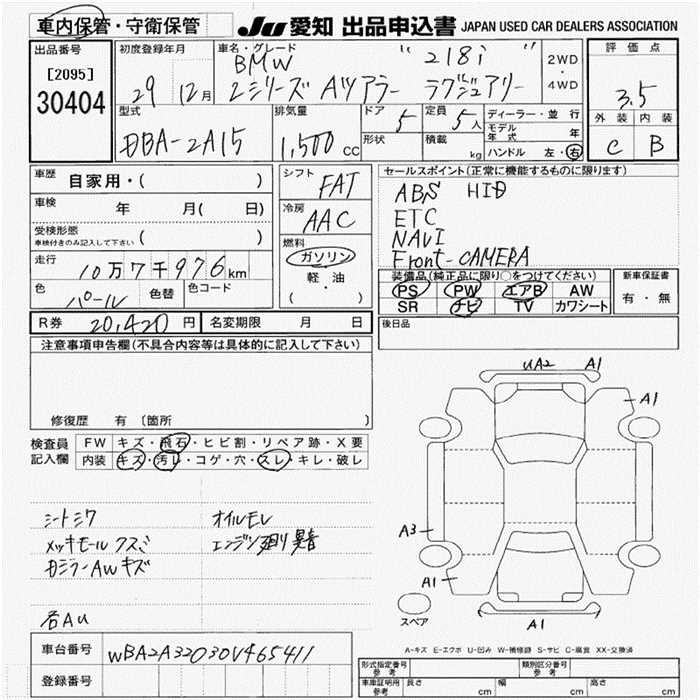 車内保管・守衛保管
JU 愛知 出品申込書 JAPAN USED CAR DEALERS ASSOCIATION
出品番号
[2095]
30404
初度登録年月
29 12月
車名・グレード
BMW "218i"
2シリーズ Aツアラー ラグジュアリー
2WD
・
4WD
評価点
3.5
外装 内装
C B
型式
DBA-2A15
排気量
1,500 cc
ドア 5
形状
定員 5人
積載 kg
ディーラー・並行
モデル年式 年
ハンドル 左・右
車歴 自家用・( )
車検 年 月( 日)
受検形態
車検付きのみ記入して下さい ( )
走行 10万7千976km
色 パール 色替 色コード
シフト FAT
冷房 AAC
燃料
ガソリン
軽・油
( )
セールスポイント(正常に機能するものに限ります)
ABS HID
ETC
NAVI
Front-CAMERA
装備品(純正品に限り○をつけてください)
PS PW エアB AW
SR ナビ TV カワシート
新車保証書
有・無
R券 20,420円 名変期限 月 日
後日品
注意事項申告欄(不具合内容等は具体的に記入して下さい)
修復歴 有 〔箇所 〕
検査員記入欄
FW キズ・飛石・ヒビ割・リペア跡・X要
内装 キズ・汚レ・コゲ・穴・スレ・キレ・破レ
シートシワ オイルモレ
メッキモールクスミ エンジン廻り異音
カジラーAWキズ
各AU
UA2 A1
A1
A3
A1
A1
スペア
A-キズ E-エクボ U-凹み W-補修跡 S-サビ C-腐食 XX-交換済
車台番号 WBA2A32030V465411
登録番号
形式指定番号 参考 類別区分番号 参考
車庫証明用 参考 長さ cm 幅 cm 高さ cm